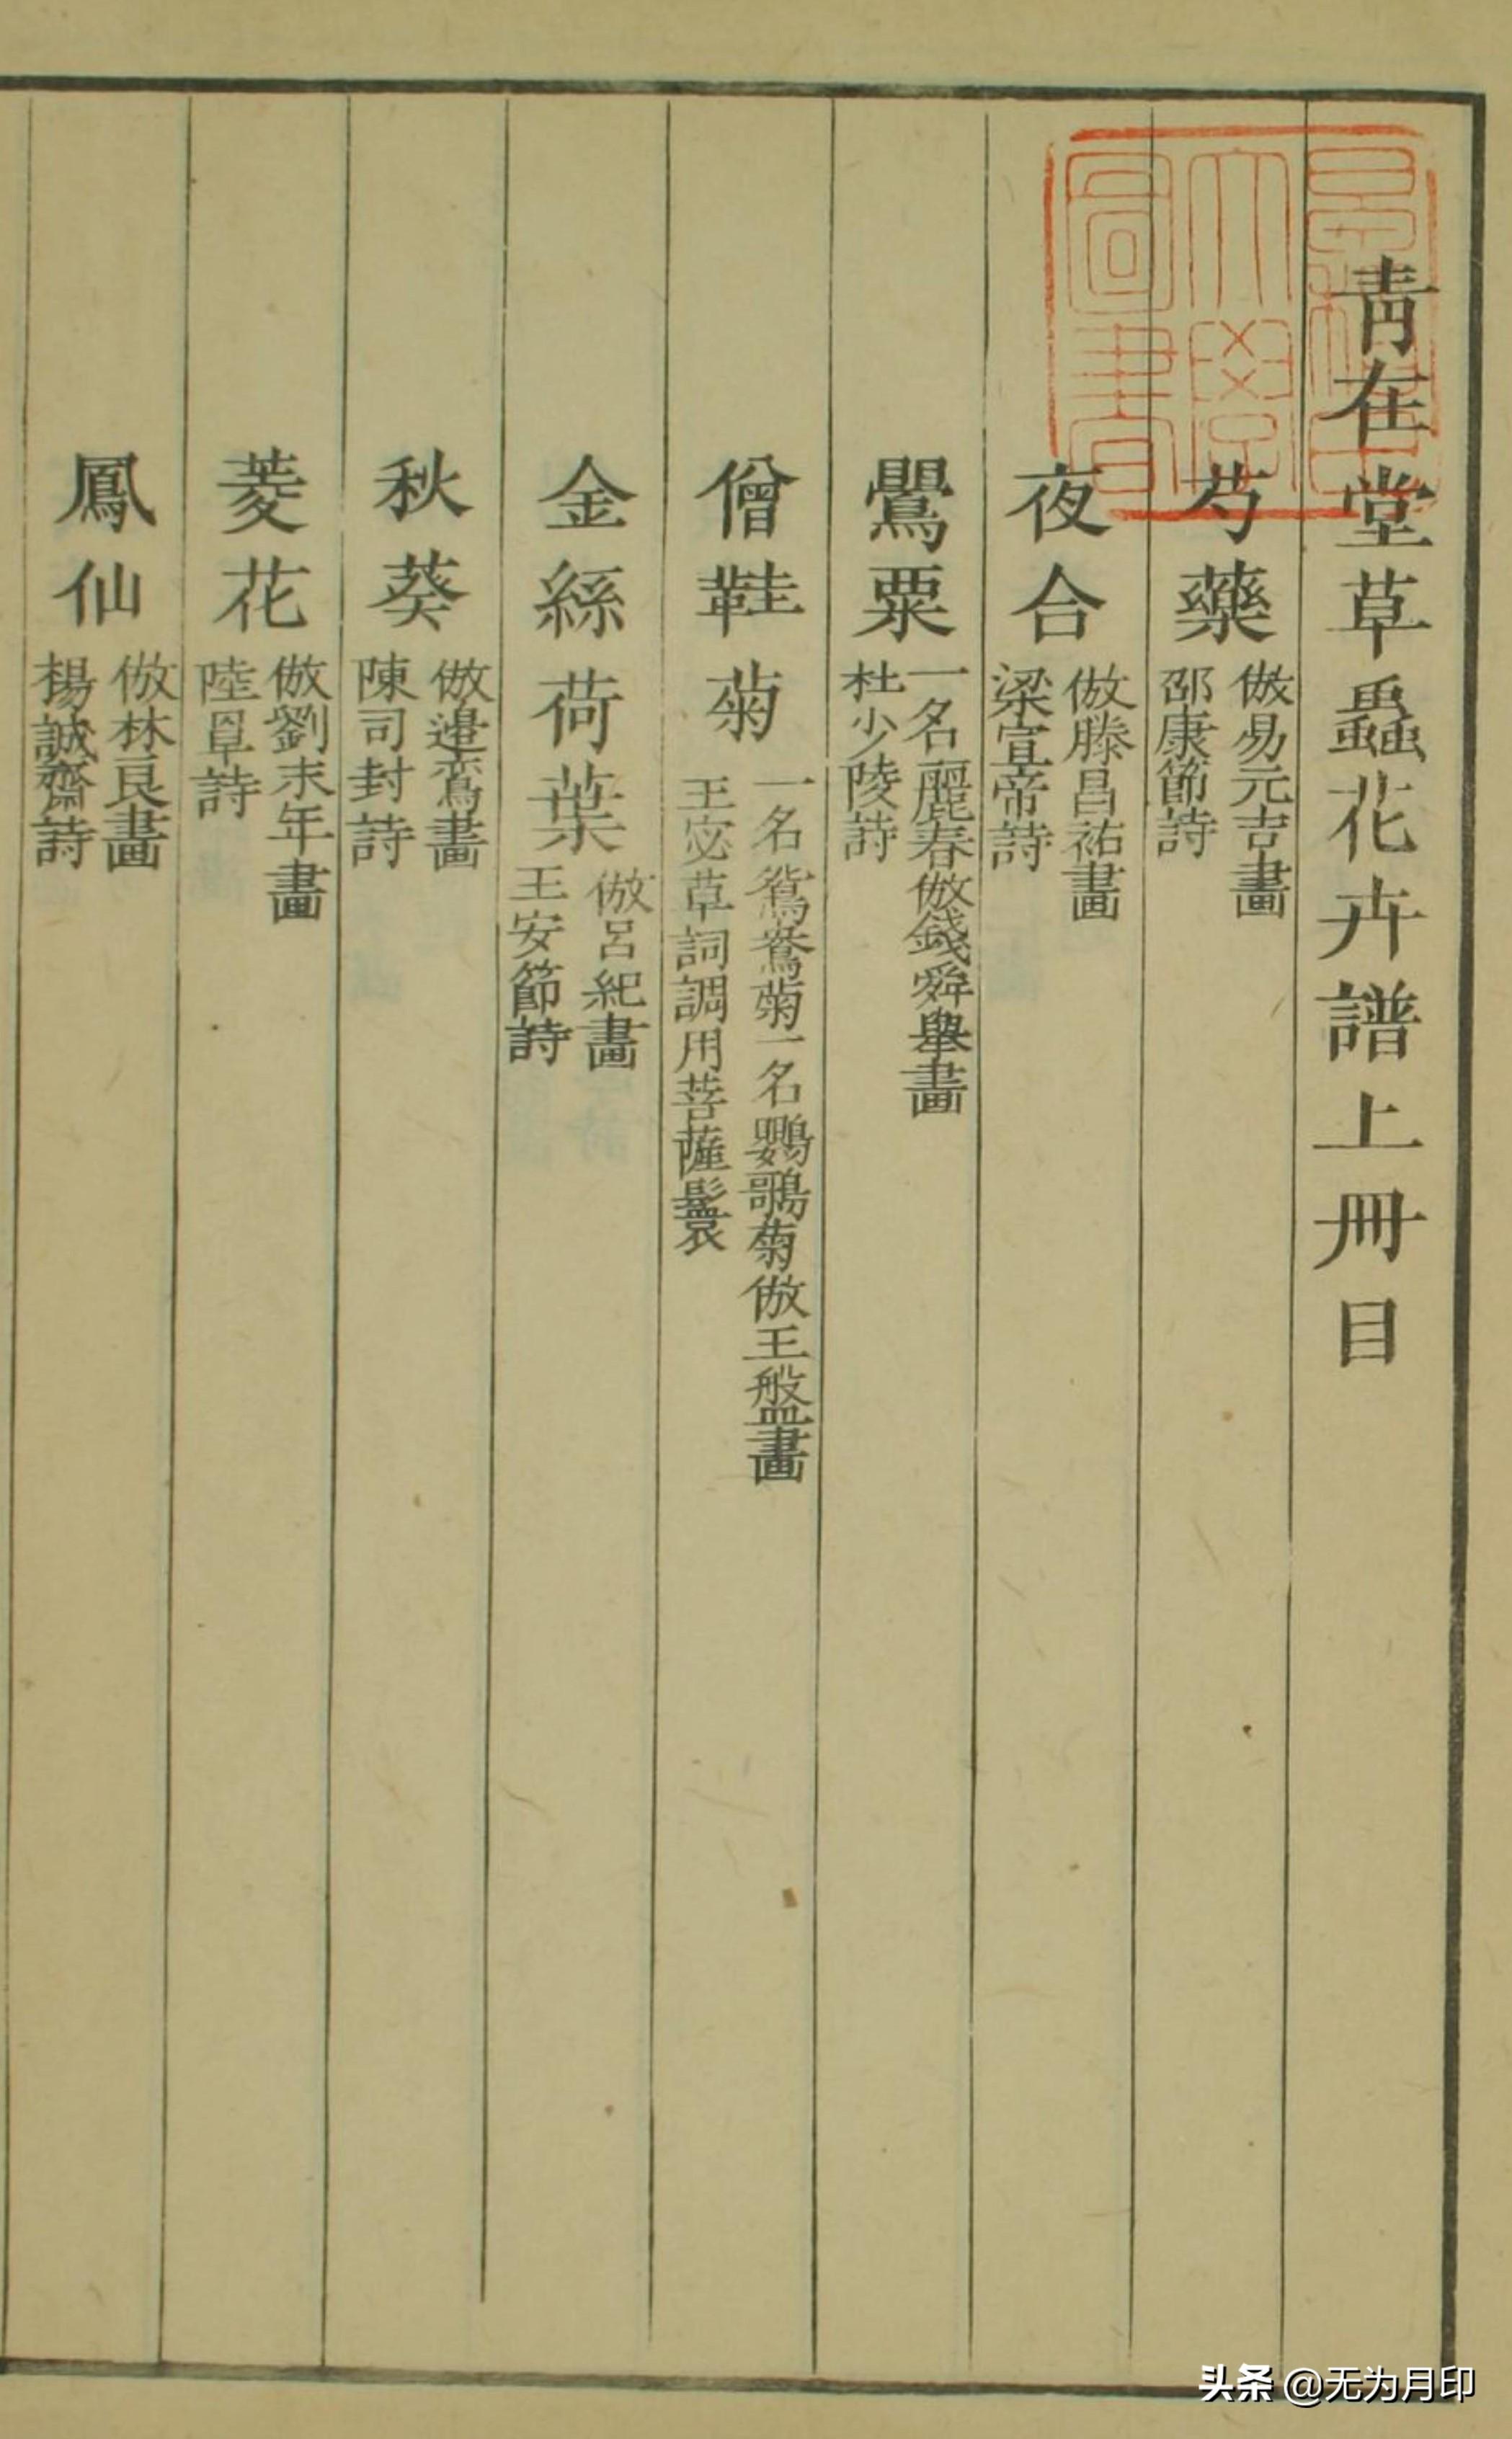 青在堂草蟲花卉譜上冊目
芍藥
倣易元吉畫
邵康節詩
夜合
倣滕昌祐畫
梁宣帝詩
鸎粟
一名麗春倣錢舜舉畫
杜少陵詩
僧鞋菊
一名鴛鴦菊一名鸚鵡菊倣王盤畫
王宓草詞調用菩薩鬟
金絲荷葉
倣呂紀畫
王安節詩
秋葵
倣邊鸞畫
陳司封詩
菱花
倣劉永年畫
陸詩
鳳仙
倣林良畫
楊誠齋詩
大學
圖書
头条 @无为月印